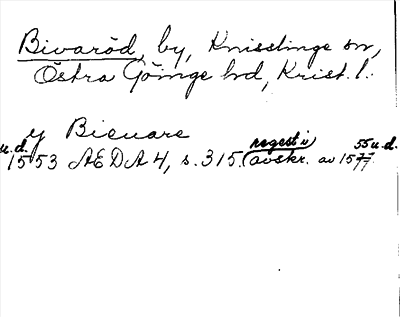 Bivaröd, by, Knisslinge sn,
Östra Göinge hd, Krist. l.
y Bieuare
u.d. regest i 55 u.d.
1553 AEDA 4, s. 315. (avskr. av 1577)